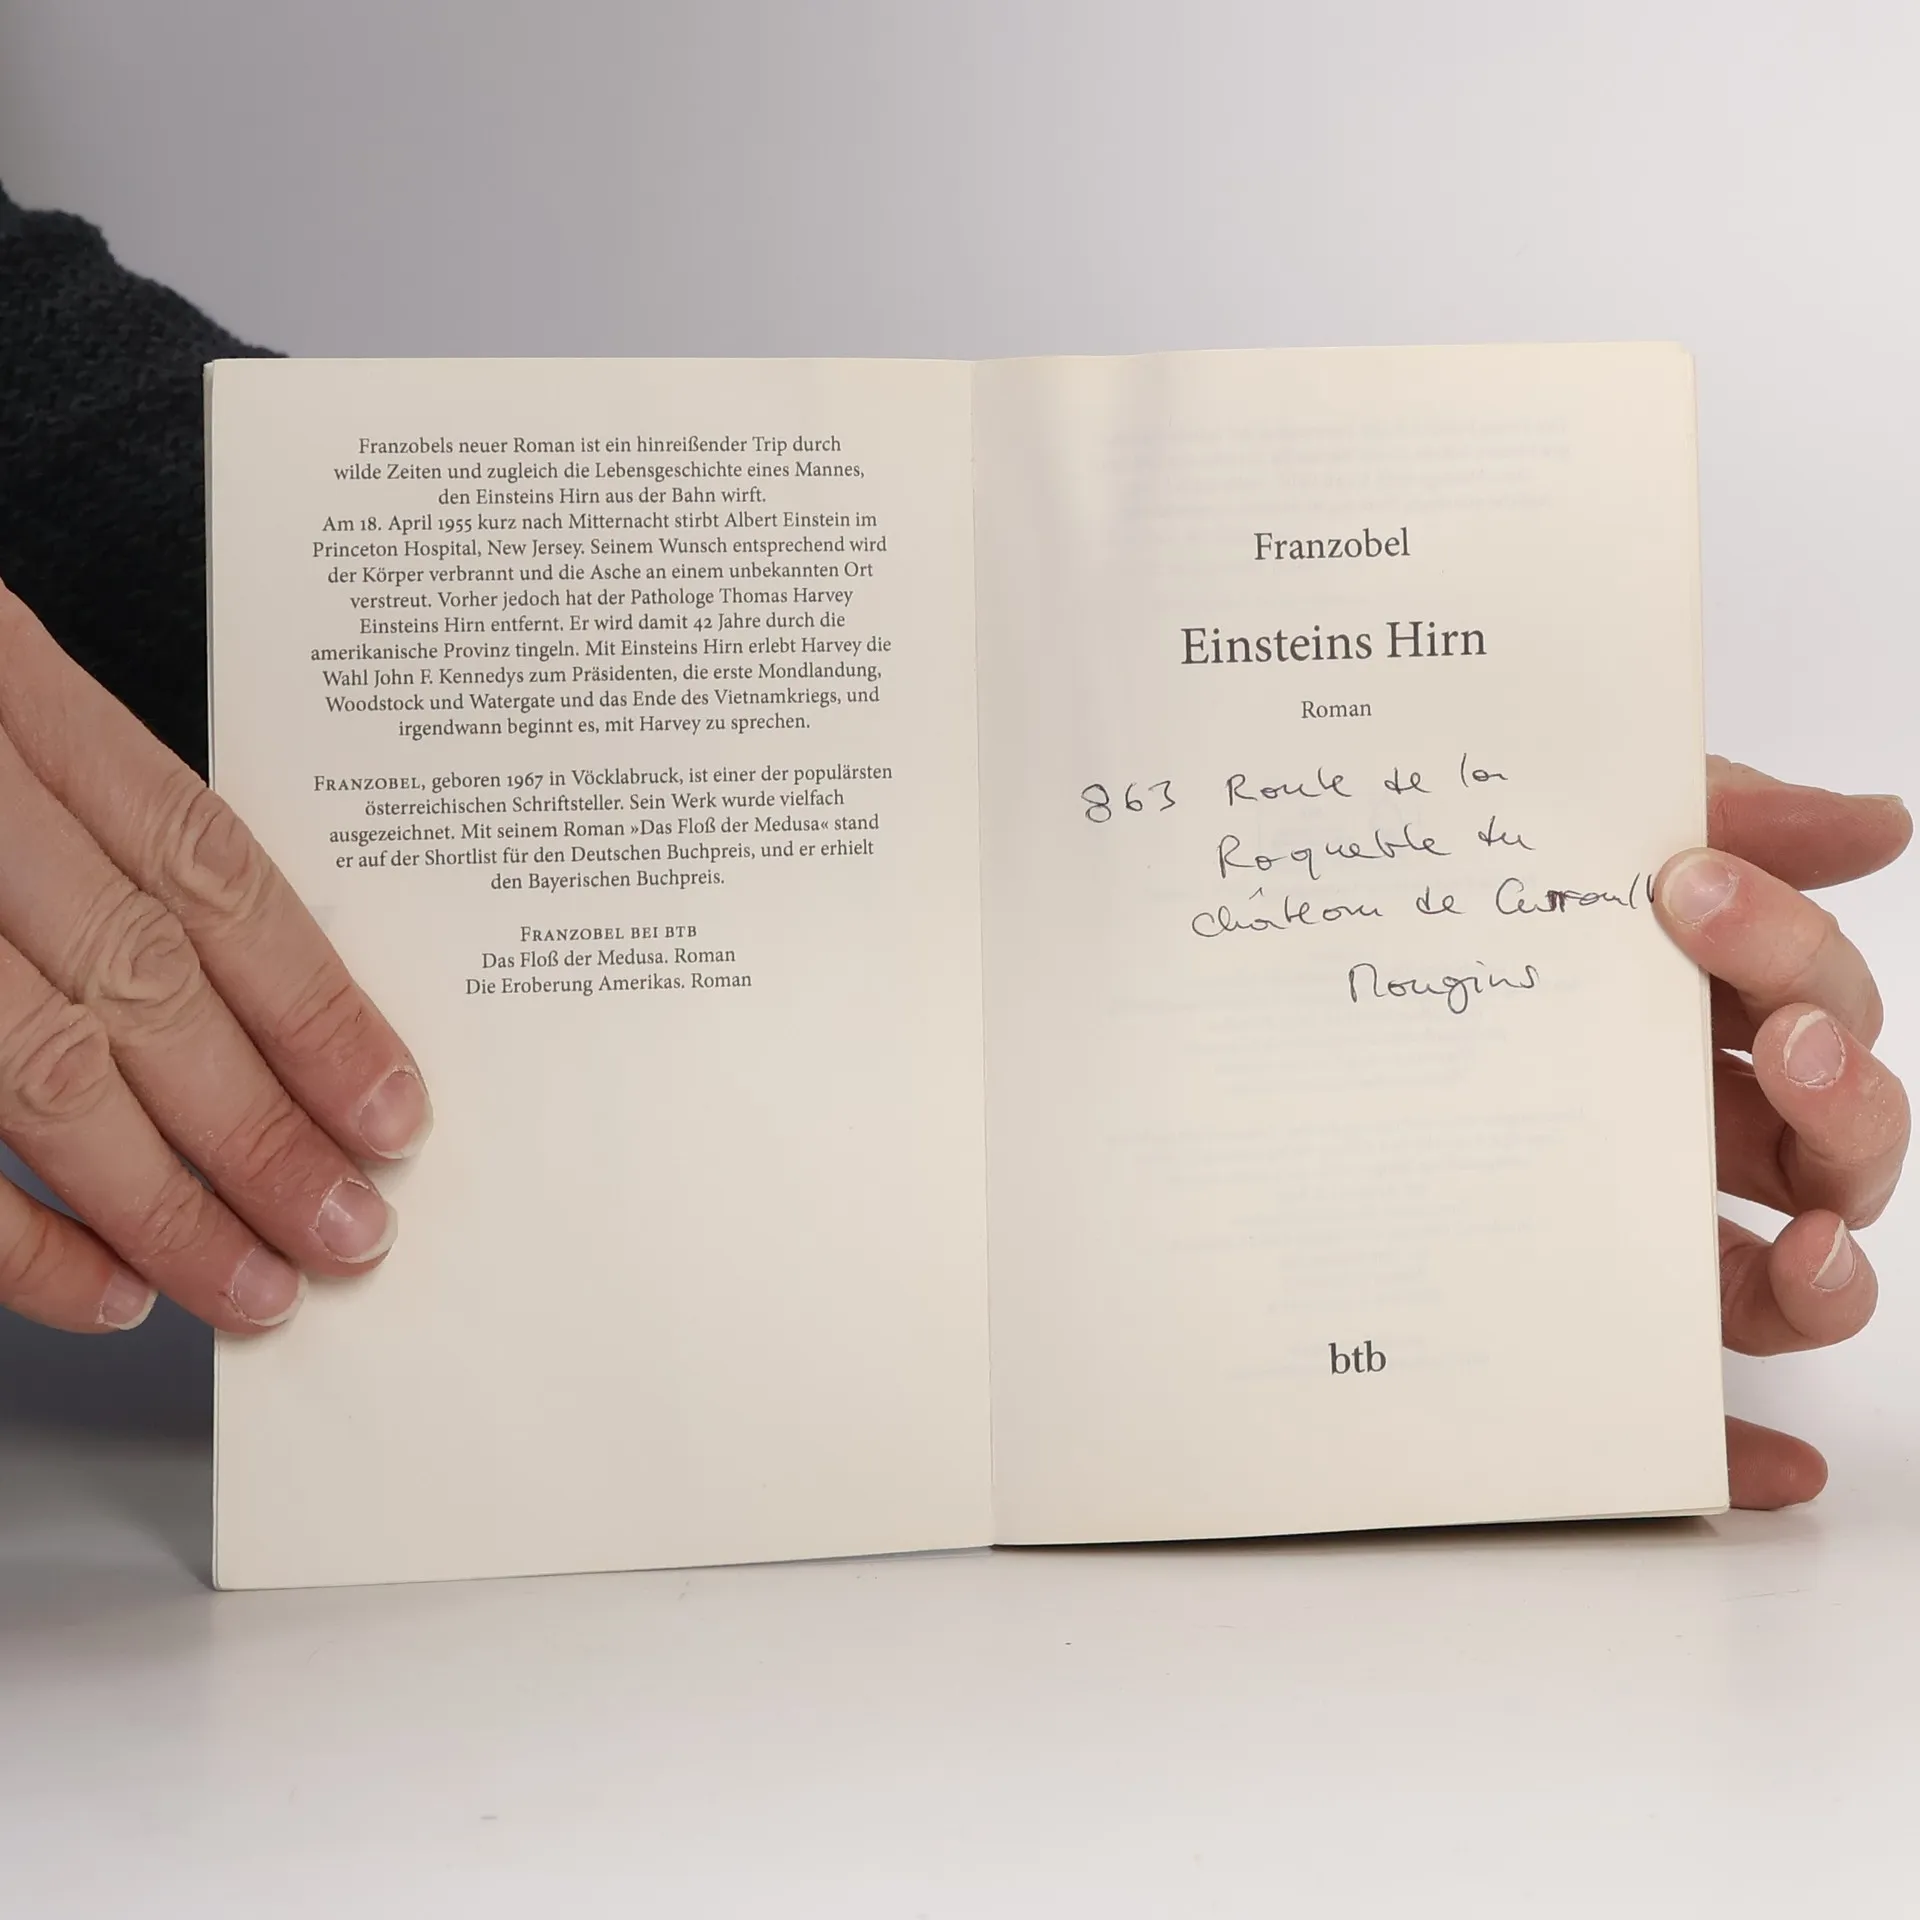 Franzobels neuer Roman ist ein hinreißender Trip durch
wilde Zeiten und zugleich die Lebensgeschichte eines Mannes,
den Einsteins Hirn aus der Bahn wirft.
Am 18. April 1955 kurz nach Mitternacht stirbt Albert Einstein im
Princeton Hospital, New Jersey. Seinem Wunsch entsprechend wird
der Körper verbrannt und die Asche an einem unbekannten Ort
verstreut. Vorher jedoch hat der Pathologe Thomas Harvey
Einsteins Hirn entfernt. Er wird damit 42 Jahre durch die
amerikanische Provinz tingeln. Mit Einsteins Hirn erlebt Harvey die
Wahl John F. Kennedys zum Präsidenten, die erste Mondlandung,
Woodstock und Watergate und das Ende des Vietnamkriegs, und
irgendwann beginnt es, mit Harvey zu sprechen.
FRANZOBEL, geboren 1967 in Vöcklabruck, ist einer der populärsten
österreichischen Schriftsteller. Sein Werk wurde vielfach
ausgezeichnet. Mit seinem Roman »Das Floß der Medusa« stand
er auf der Shortlist für den Deutschen Buchpreis, und er erhielt
den Bayerischen Buchpreis.
FRANZOBEL BEI BTB
Das Floß der Medusa. Roman
Die Eroberung Amerikas. Roman
Franzobel
Einsteins Hirn
Roman
863 Route de la
Roquette du
château de
Mougins
btb